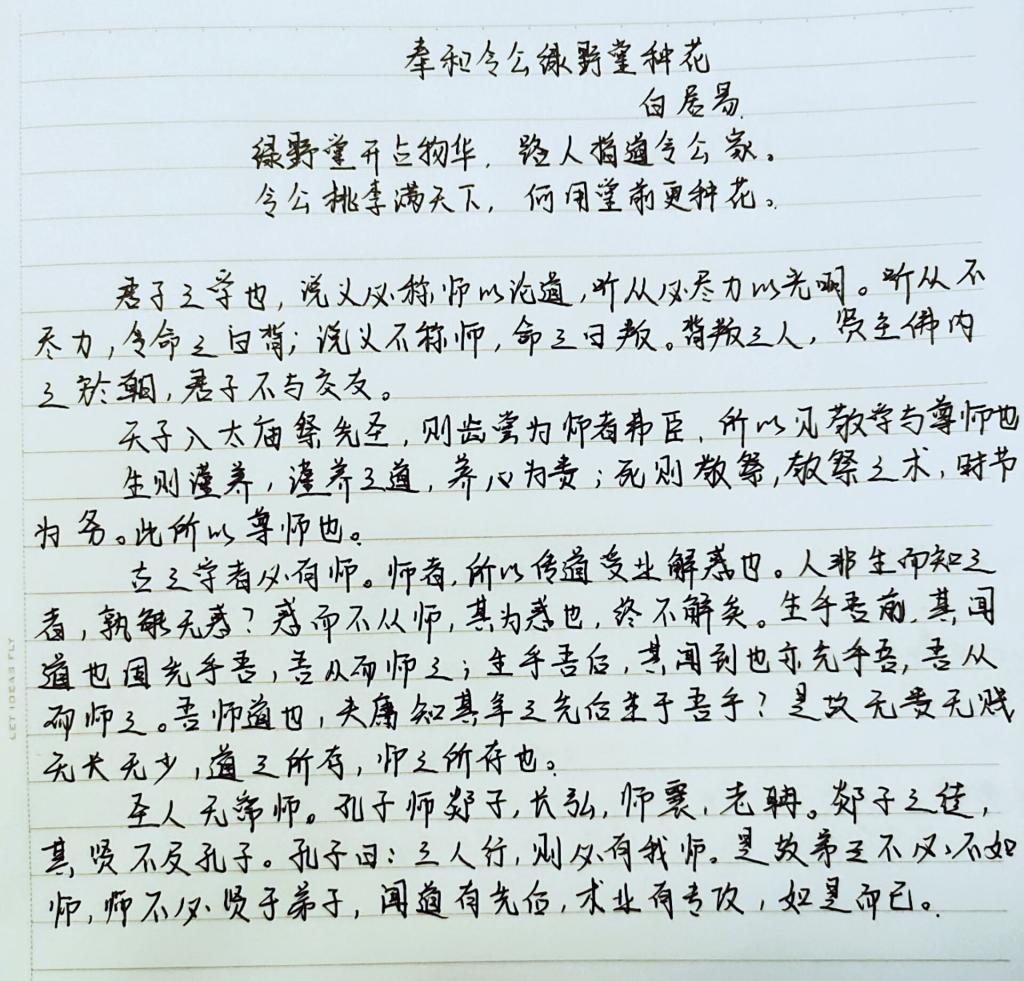 奉和令公绿野堂种花
白居易
绿野堂开占物华，路人指道令公家。
令公桃李满天下，何用堂前更种花。
君子之学也，说义必称师以论道，听从必尽力以光明。听从不
尽力，令命之曰背；说义不称师，命之曰叛。背叛之人，贤主弗内
之于朝，君子不与交友。
天子入太庙祭先圣，则齿尝为师者弗臣，所以见敬学与尊师也
生则谨养，谨养之道，养心为贵；死则敬祭，敬祭之术，时节
为务。此所以尊师也。
古之学者必有师。师者，所以传道受业解惑也。人非生而知之
者，孰能无惑？惑而不从师，其为惑也，终不解矣。生乎吾前，其闻
道也固先乎吾，吾从而师之；生乎吾后，其闻到也亦先乎吾，吾从
而师之。吾师道也，夫庸知其年之先后生于吾乎？是故无贵无贱
无长无少，道之所存，师之所存也。
圣人无常师。孔子师郯子，长弘，师襄，老聃。郯子之徒，
其贤不及孔子。孔子曰：三人行，则必有我师。是故弟子不必不如
师，师不必贤于弟子，闻道有先后，术业有专攻，如是而已。
LET IDEAS FLY